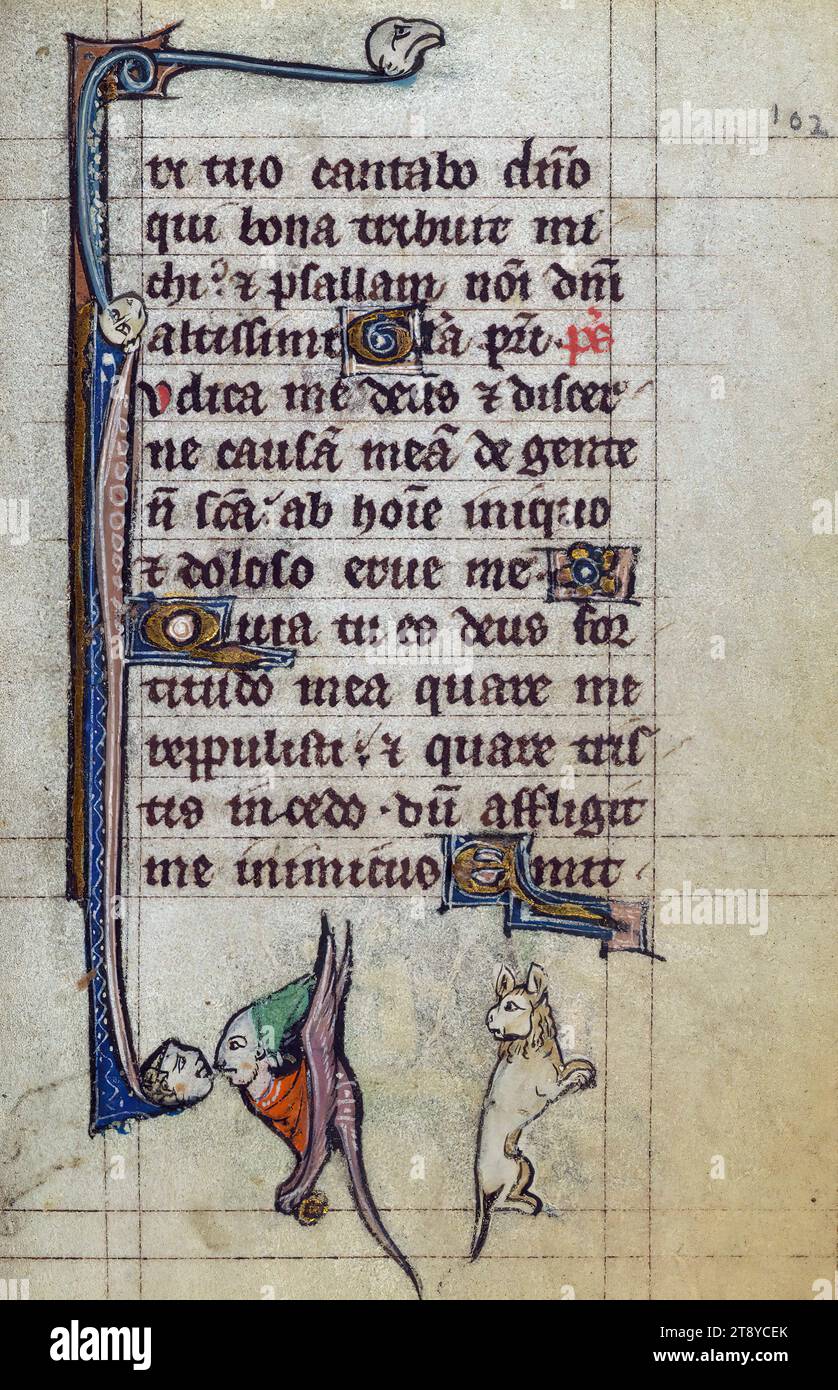 102
ri tuo cantabo dño
qui bona tribuit mi
chi? ⁊ psallam noı̃ dñi
altissimi Glã pr̃i. pš
vdica me deus ⁊ discer
ne causã meã de gente
ñ scã: ab hoı̃e iniquo
⁊ doloso erue me.
Quia tu es deus for
titudo mea quare me
reppulisti: ⁊ quare tris
tis incedo. dũ affligit
me inimicus Emit
alamy
Image ID: 2T8YCEK
www.alamy.com